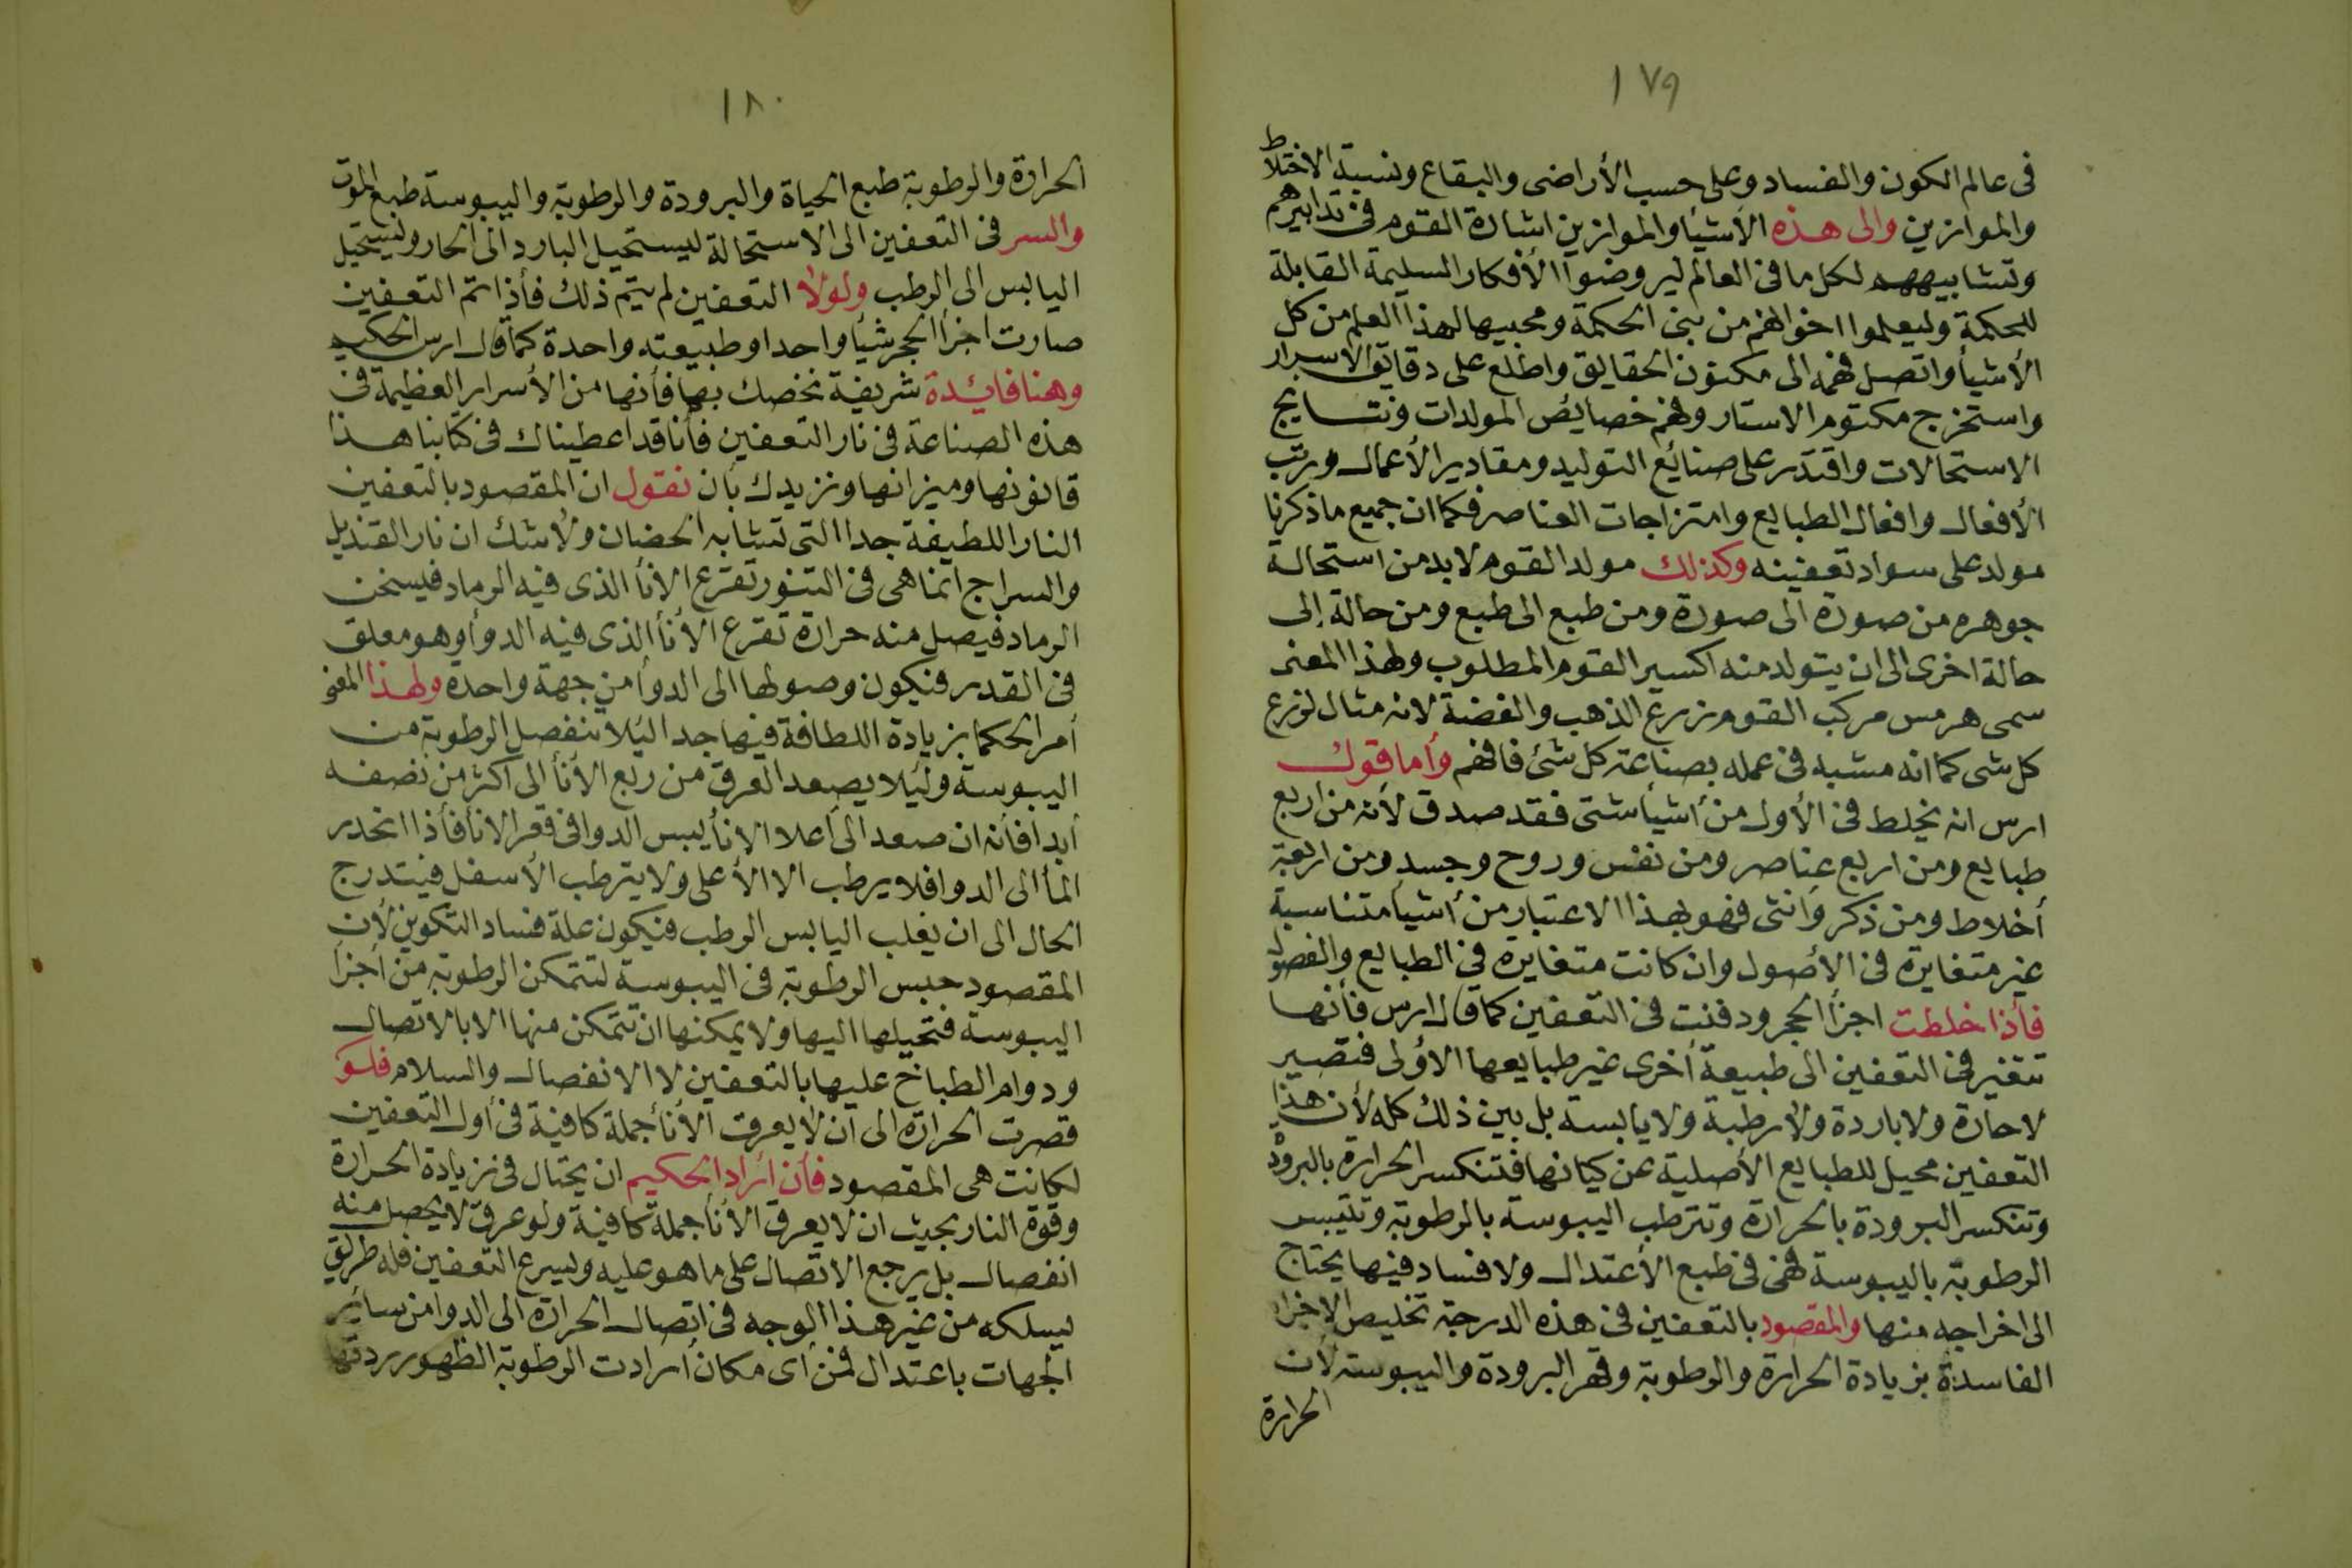 ١٧٩
فى عالم الكون والفساد وعلى حسب الأراضى والبقاع ونسبة الاختلاط
والموازين والى هذه الأشيأ والموازين اشارة القوم فى تدابيرهم
وتشابيههم لكل ما فى العالم ليروضوا الأفكار السليمة القابلة
للحكمة وليعلموا اخوانهم من بنى الحكمة ومحبيها لهذا العلم من كل
الأشيأ واتصل فهمه الى مكنون الحقايق واطلع على دقايق الاسرار
واستخرج مكتوم الاستار وفهم خصايص المولدات ونتايج
الاستحالات واقتدر على صنائع التوليد ومقادير الأعمال ورتب
الأفعال وافعال الطبايع وامتزاجات العناصر فكما ان جميع ما ذكرنا
مولد على سواد تعفينه وكذلك مولد القوم لابد من استحالة
جوهره من صورة الى صورة ومن طبع الى طبع ومن حالة إلى
حالة اخرى الى ان يتولد منه اكسير القوم المطلوب ولهذا المعنى
سمى هرمس مركب القوم زرع الذهب والفضة لانه مثال لزرع
كل شى كما انه مشبه فى عمله بصناعة كل شئ فافهم وأما قوك
ارس انه يخلط فى الأول من أشيأ شتى فقد صدق لأنه من اربع
طبايع ومن اربع عناصر ومن نفس وروح وجسد ومن اربعة
أخلاط ومن ذكر وأنثى فهو بهذا الاعتبار من أشيأ متناسبة
غير متغايرة فى الأصول وان كانت متغايرة فى الطبايع والفصول
فأذا خلطت اجزأ الحجر ودفنت فى التعفين كما قال ارس فأنها
تتغير فى التعفين الى طبيعة أخرى غير طبايعها الأولى فتصير
لا حارة ولا باردة ولا رطبة ولا يابسة بل بين ذلك كله لأن هذا
التعفين محيل للطبايع الأصلية عن كيانها فتنكسر الحرارة بالبرودة
وتنكسر البرودة بالحرارة وتترطب اليبوسة بالرطوبة وتتيبس
الرطوبة باليبوسة فهى فى طبع الأعتدال ولا فساد فيها يحتاج
الى اخراجه منها والمقصود بالتعفين فى هذه الدرجة تخليص الاجزاء
الفاسدة بزيادة الحرارة والرطوبة وقهر البرودة واليبوسة لأن
الحرارة
١٨٠
الحرارة والرطوبة طبع الحياة والبرودة والرطوبة واليبوسة طبع الموت
والسر فى التعفين الى الاستحالة ليستحيل البارد الى الحار وليستحيل
اليابس الى الرطب ولولا التعفين لم يتم ذلك فأذا تم التعفين
صارت اجزأ الحجر شيأ واحدا وطبيعته واحدة كما قال ارس الحكيم
وهنا فايئدة شريفة نخصك بها فأنها من الأسرار العظيمة فى
هذه الصناعة فى نار التعفين فأنا قد اعطيناك فى كتابنا هذا
قانونها وميزانها ونزيدك بأن نقول ان المقصود بالتعفين
النار اللطيفة جدا التى تشابه الحضان ولا شك ان نار القنديل
والسراج انما هى فى التنور تقترع الانأ الذى فيه الرماد فيسخن
الرماد فيصل منه حرارة تقرع الأنأ الذى فيه الدوأ وهو معلق
فى القدر فيكون وصولها الى الدوأ من جهة واحدة ولهذا المعنى
أمر الحكما بزيادة اللطافة فيها جدا ليئلا تنفصل الرطوبة من
اليبوسة وليئلا يصعد العرق من ربع الأنأ الى اكثر من نصفه
أبدا فأنه ان صعد الى أعلا الانأ يبس الدوا فى قعر الانأ فأذا انحدر
المأ الى الدوا فلا يرطب الا الأعلى ولا يترطب الأسفل فيتدرج
الحال الى ان يغلب اليابس الرطب فيكون علة فساد التكوين لأن
المقصود حبس الرطوبة فى اليبوسة لتتمكن الرطوبة من أجزأ
اليبوسة فتحيلها اليها ولا يمكنها ان تتمكن منها الا بالاتصال
ودوام الطباخ عليها بالتعفين لا الانفصال والسلام فلو
قصرت الحرارة الى ان لا يعرق الأنأ جملة كافية فى أول التعفين
لكانت هى المقصود فأن أراد الحكيم ان يحتال فى زيادة الحرارة
وقوة النار بحيث ان لا يعرق الأنأ جملة كافية ولو عرق لا يحصل منه
انفصال بل يرجع الاتصال على ما هو عليه ويسرع التعفين فله طريق
يسلكه من غير هذا الوجه فى اتصال الحرارة الى الدوا من سائر
الجهات باعتدال فمن أى مكان أرادت الرطوبة الظهور ردتها